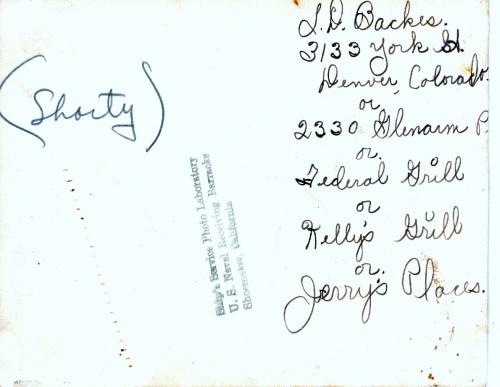 L.D. Backes.
3133 York St.
Denver, Colorado.
or
2330 Glenarm P.
or.
Federal Grill
or
Kelly's Grill
or.
Jerry's Places.
(Shorty)
Ship's Service Photo Laboratory
U. S. Naval Receiving Barracks
Shoemaker, California